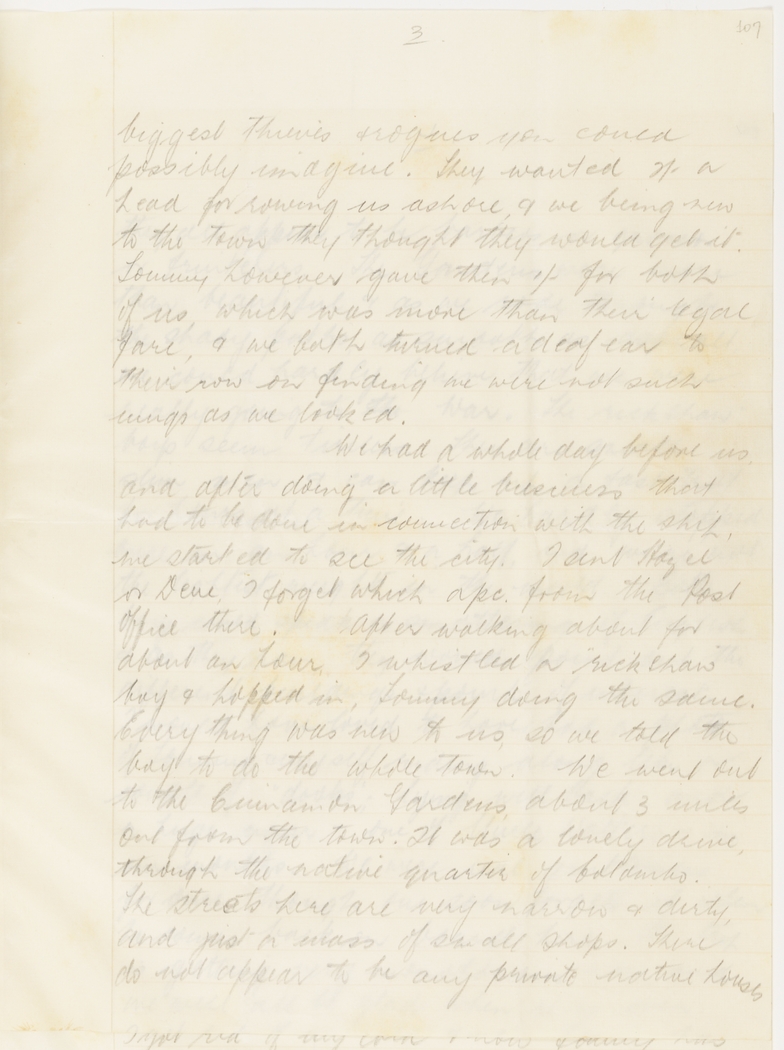 3
107
biggest thieves & rogues you could
possibly imagine. They wanted 4/- a
head for rowing us ashore, & we being new
to the town they thought they would get it.
Tommy however gave them 4/- for both
of us, which was more than their legal
fare, & we both turned a deaf ear to
their row on finding we were not such
mugs as we looked.
We had a whole day before us,
and after doing a little business that
had to be done in connection with the ship,
we started to see the city. I sent Hazel
or Dene, I forget which a p.c. from the Post
Office there. After walking about for
about an hour, I whistled a 'rickshaw
boy & hopped in, Tommy doing the same.
Everything was new to us, so we told the
boy to do the whole town. We went out
to the Cinnamon Gardens, about 3 miles
out from the town. It was a lovely drive,
through the native quarter of Colombo.
The streets here are very narrow & dirty,
and just a mass of small shops. There
do not appear to be any private native houses
of my